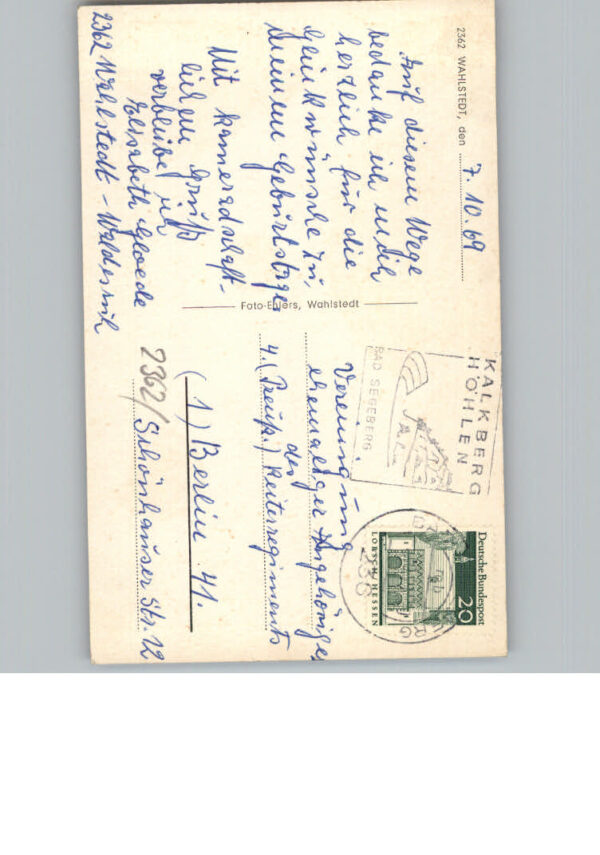 2362 WAHLSTEDT, den 7.10.69
Auf diesem Wege
bedanke ich mich
herzlich für die
Glückwünsche zu
meinem Geburtstage
Mit kameradschaft-
lichem Gruß
verbleibe ich
Elisabeth Gloede
2362 Wahlstedt - Waldesruh
Foto-Ehlers, Wahlstedt
KALKBERG
HÖHLEN
BAD SEGEBERG
Deutsche Bundespost
20
LORSCH/HESSEN
236
Vereinigung
ehemaliger Angehöriger
des
4. (Preuß.) Reiterregiments
(1) Berlin 41.
2362/ Schönhauser Str. 12